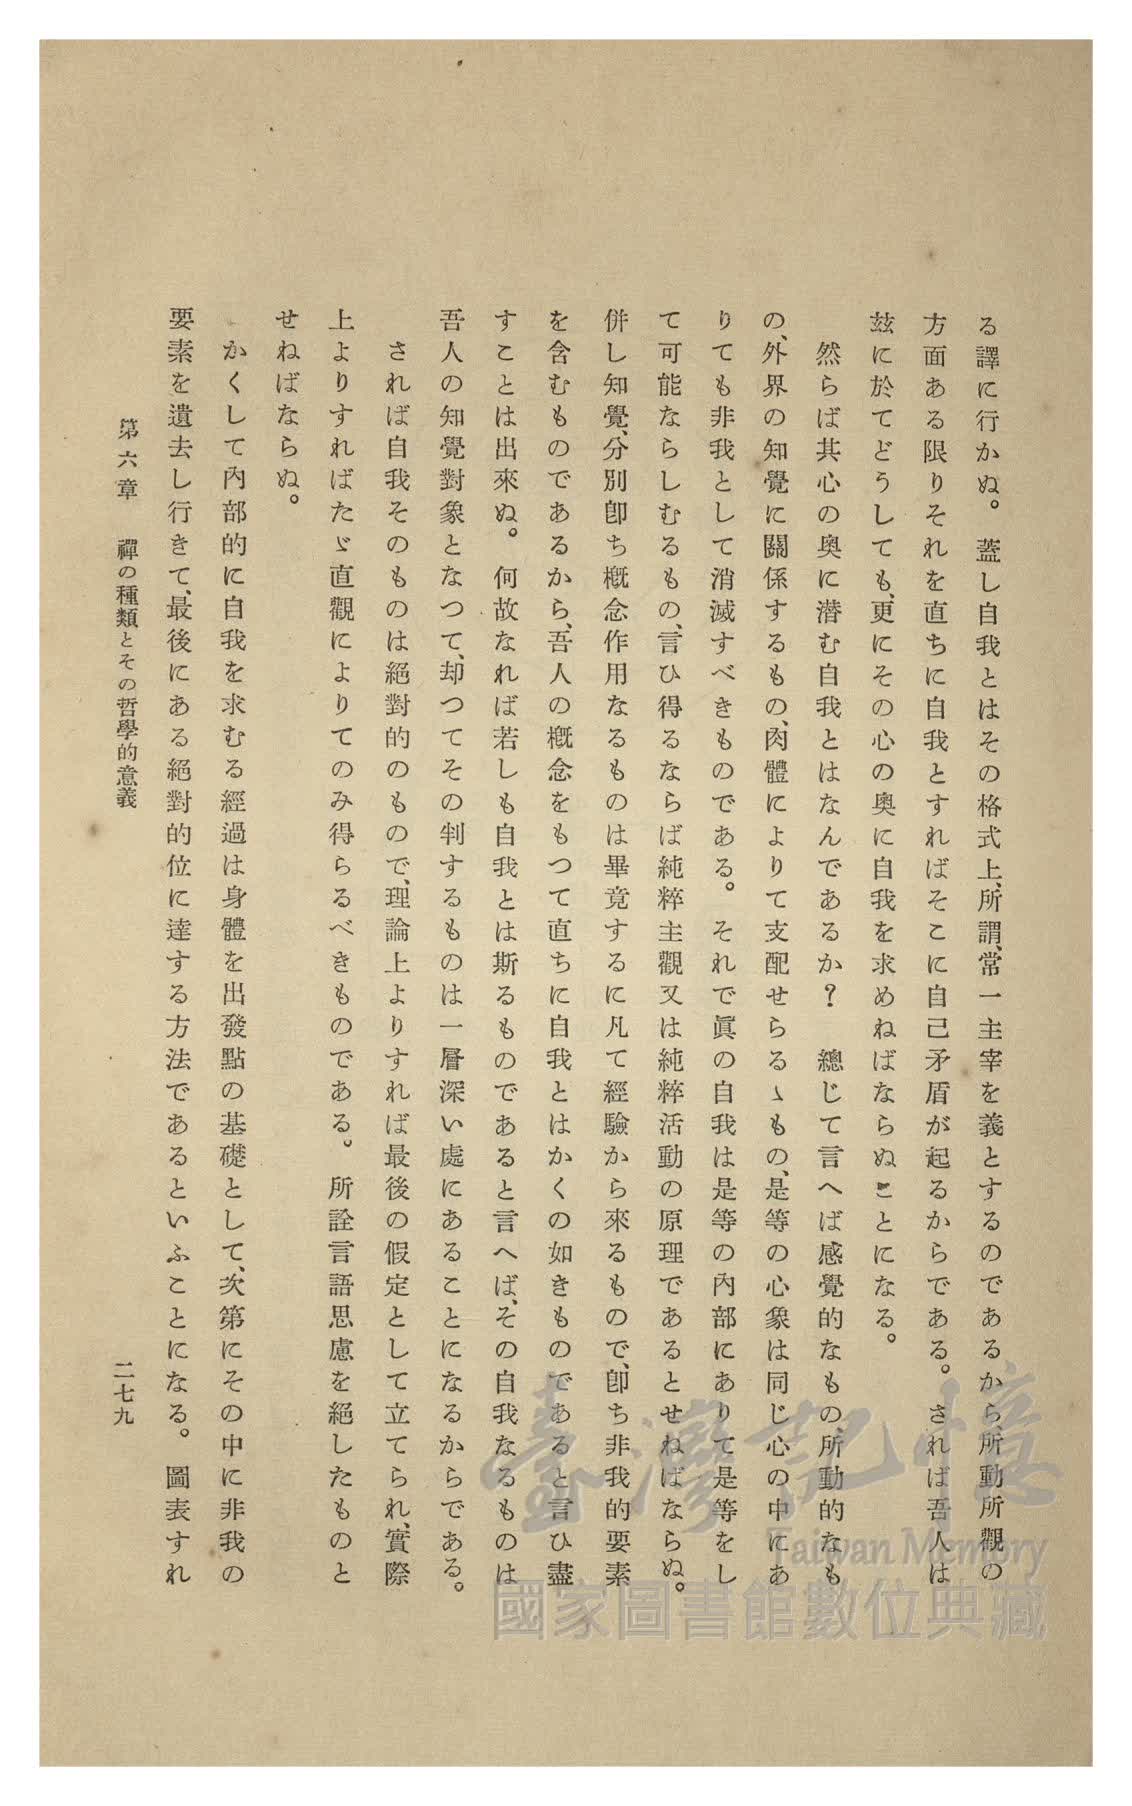 る譯に行かぬ。蓋し自我とはその格式上、所謂、常一主宰を義とするのであるから、所動所觀の
方面ある限りそれを直ちに自我とすればそこに自己矛盾が起るからである。されば吾人は
玆に於てどうしても、更にその心の奥に自我を求めねばならぬことになる。
然らば其心の奥に潜む自我とはなんであるか？　總じて言へば感覺的なもの、所動的なも
の、外界の知覺に關係するもの、肉體によりて支配せらるゝもの、是等の心象は同じ心の中にあ
りても非我として消滅すべきものである。それで眞の自我は是等の內部にありて是等をし
て可能ならしむるもの、言ひ得るならば純粹主觀又は純粹活動の原理であるとせねばならぬ。
併し知覺、分別卽ち槪念作用なるものは畢竟するに凡て經驗から來るもので、卽ち非我的要素
を含むものであるから、吾人の槪念をもつて直ちに自我とはかくの如きものであると言ひ盡
すことは出來ぬ。何故なれば若しも自我とは斯るものであると言へば、その自我なるものは
吾人の知覺對象となつて、却つてその判するものは一層深い處にあることになるからである。
されば自我そのものは絕對的のもので、理論上よりすれば最後の假定として立てられ、實際
上よりすればたゞ直觀によりてのみ得らるべきものである。所詮言語思慮を絕したものと
せねばならぬ。
かくして內部的に自我を求むる經過は身體を出發點の基礎として、次第にその中に非我の
要素を遺去し行きて、最後にある絕對的位に達する方法であるといふことになる。圖表すれ
第六章　禪の種類とその哲學的意義
二七九
臺灣記憶
Taiwan Memory
國家圖書館數位典藏